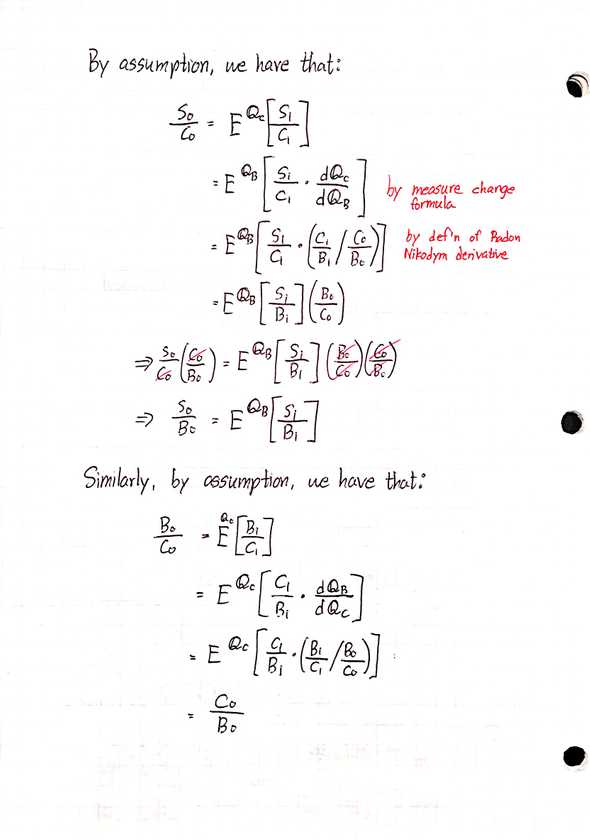 By assumption, we have that:
S₀/C₀ = E^{Q_C}[S₁/C₁]
= E^{Q_B}[S₁/C₁ · dQ_C/dQ_B] by measure change formula
= E^{Q_B}[S₁/C₁ · (C₁/B₁ / C₀/B₀)] by def'n of Radon Nikodym derivative
= E^{Q_B}[S₁/B₁](B₀/C₀)
⇒ S₀/C₀(C₀/B₀) = E^{Q_B}[S₁/B₁](B₀/C₀)(C₀/B₀)
⇒ S₀/B₀ = E^{Q_B}[S₁/B₁]
Similarly, by assumption, we have that:
B₀/C₀ = E^{Q_C}[B₁/C₁]
= E^{Q_C}[C₁/B₁ · dQ_B/dQ_C]
= E^{Q_C}[C₁/B₁ · (B₁/C₁ / B₀/C₀)]
= C₀/B₀